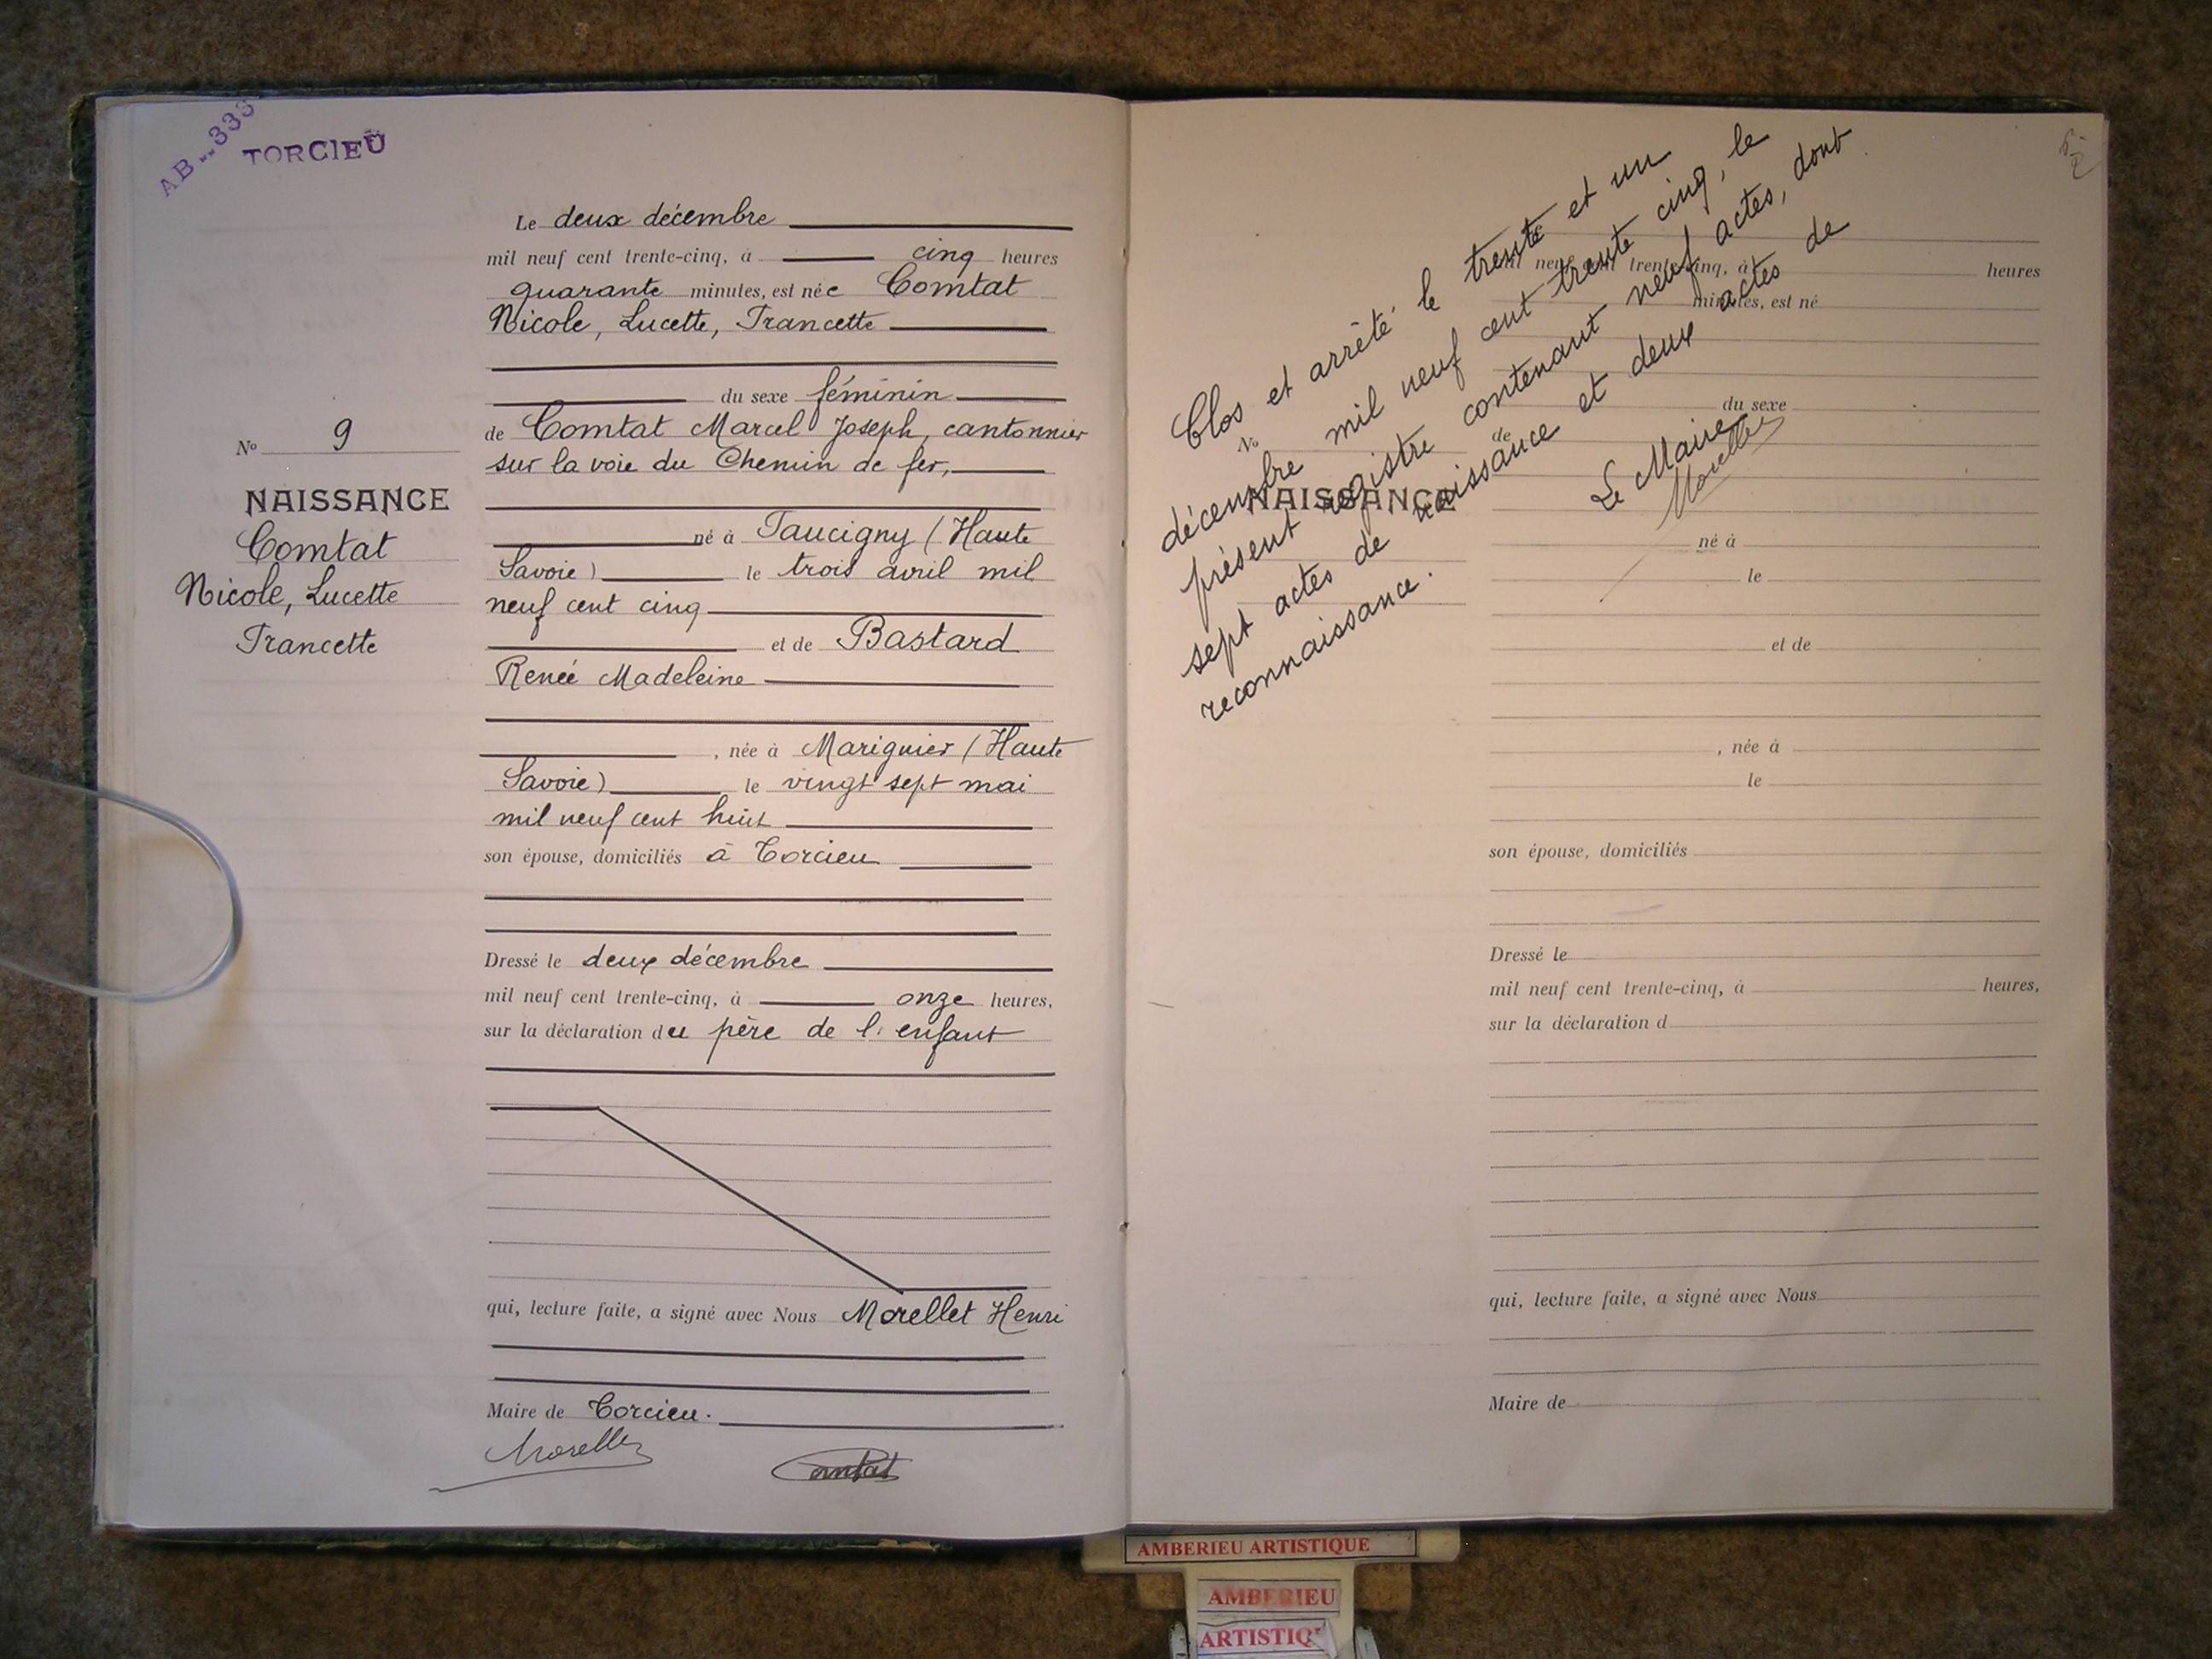 AB--333
TORCIEU
Le deux décembre
mil neuf cent trente-cinq, à cinq heures
quarante minutes, est née Comtat
Nicole, Lucette, Francette
du sexe féminin
de Comtat Marcel Joseph, cantonnier
sur la voie du Chemin de fer,
né à Faucigny (Haute
Savoie) le trois avril mil
neuf cent cinq
et de Bastard
Renée Madeleine
, née à Marignier (Haute
Savoie) le vingt sept mai
mil neuf cent huit
son épouse, domiciliés à Torcieu
Dressé le deux décembre
mil neuf cent trente-cinq, à onze heures,
sur la déclaration du père de l'enfant
qui, lecture faite, a signé avec Nous Morellet Henri
Maire de Torcieu.
Morellet
Comtat
No 9
NAISSANCE
Comtat
Nicole, Lucette
Francette
Clos et arrêté le trente et un
décembre mil neuf cent trente cinq, le
présent registre contenant neuf actes, dont
sept actes de naissance et deux actes de
reconnaissance.
Le Maire
Morellet
No
NAISSANCE
mil neuf cent trente-cinq, à heures
minutes, est né
du sexe
de
né à
le
et de
, née à
le
son épouse, domiciliés
Dressé le
mil neuf cent trente-cinq, à heures,
sur la déclaration d
qui, lecture faite, a signé avec Nous
Maire de
AMBERIEU ARTISTIQUE
AMBERIEU
ARTISTIQ